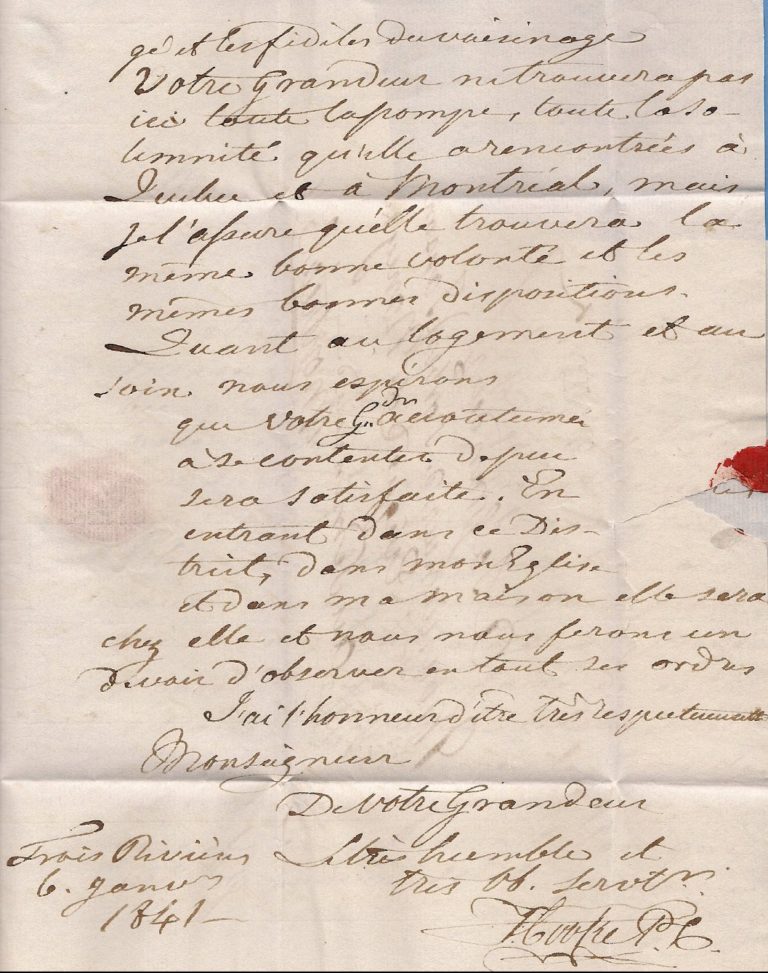 gé et les fidèles du voisinage
Votre Grandeur ne trouvera pas
ici toute la pompe, toute la so-
lemnité qu'elle a rencontrées à
Quebec et à Montréal, mais
je l'assure qu'elle trouvera la
même bonne volonté et les
mêmes bonnes dispositions.
Quant au logement et au
soin nous esperons
que Votre Gr. dr accoutumée
à se contenter de peu
sera satisfaite. En
entrant dans ce Dis-
trict, dans mon Eglise
et dans ma maison elle sera
chez elle et nous nous ferons un
devoir d'observer en tout ses ordres
J'ai l'honneur d'être très respectueusemt
Monseigneur
De Votre Grandeur
Le très humble et
très ob. servtr.
Trois Rivières
6. janvr
1841
Cooke P.